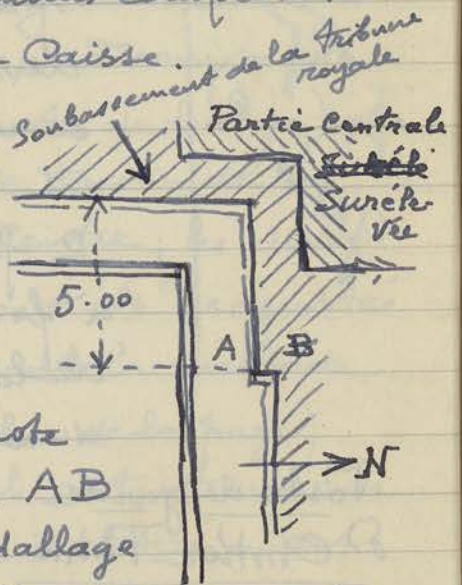 - Caisse.
Soubassement de la tribune
royale
Partie Centrale
Suréle-
vée
5.00
A B
cote
AB
N
dallage